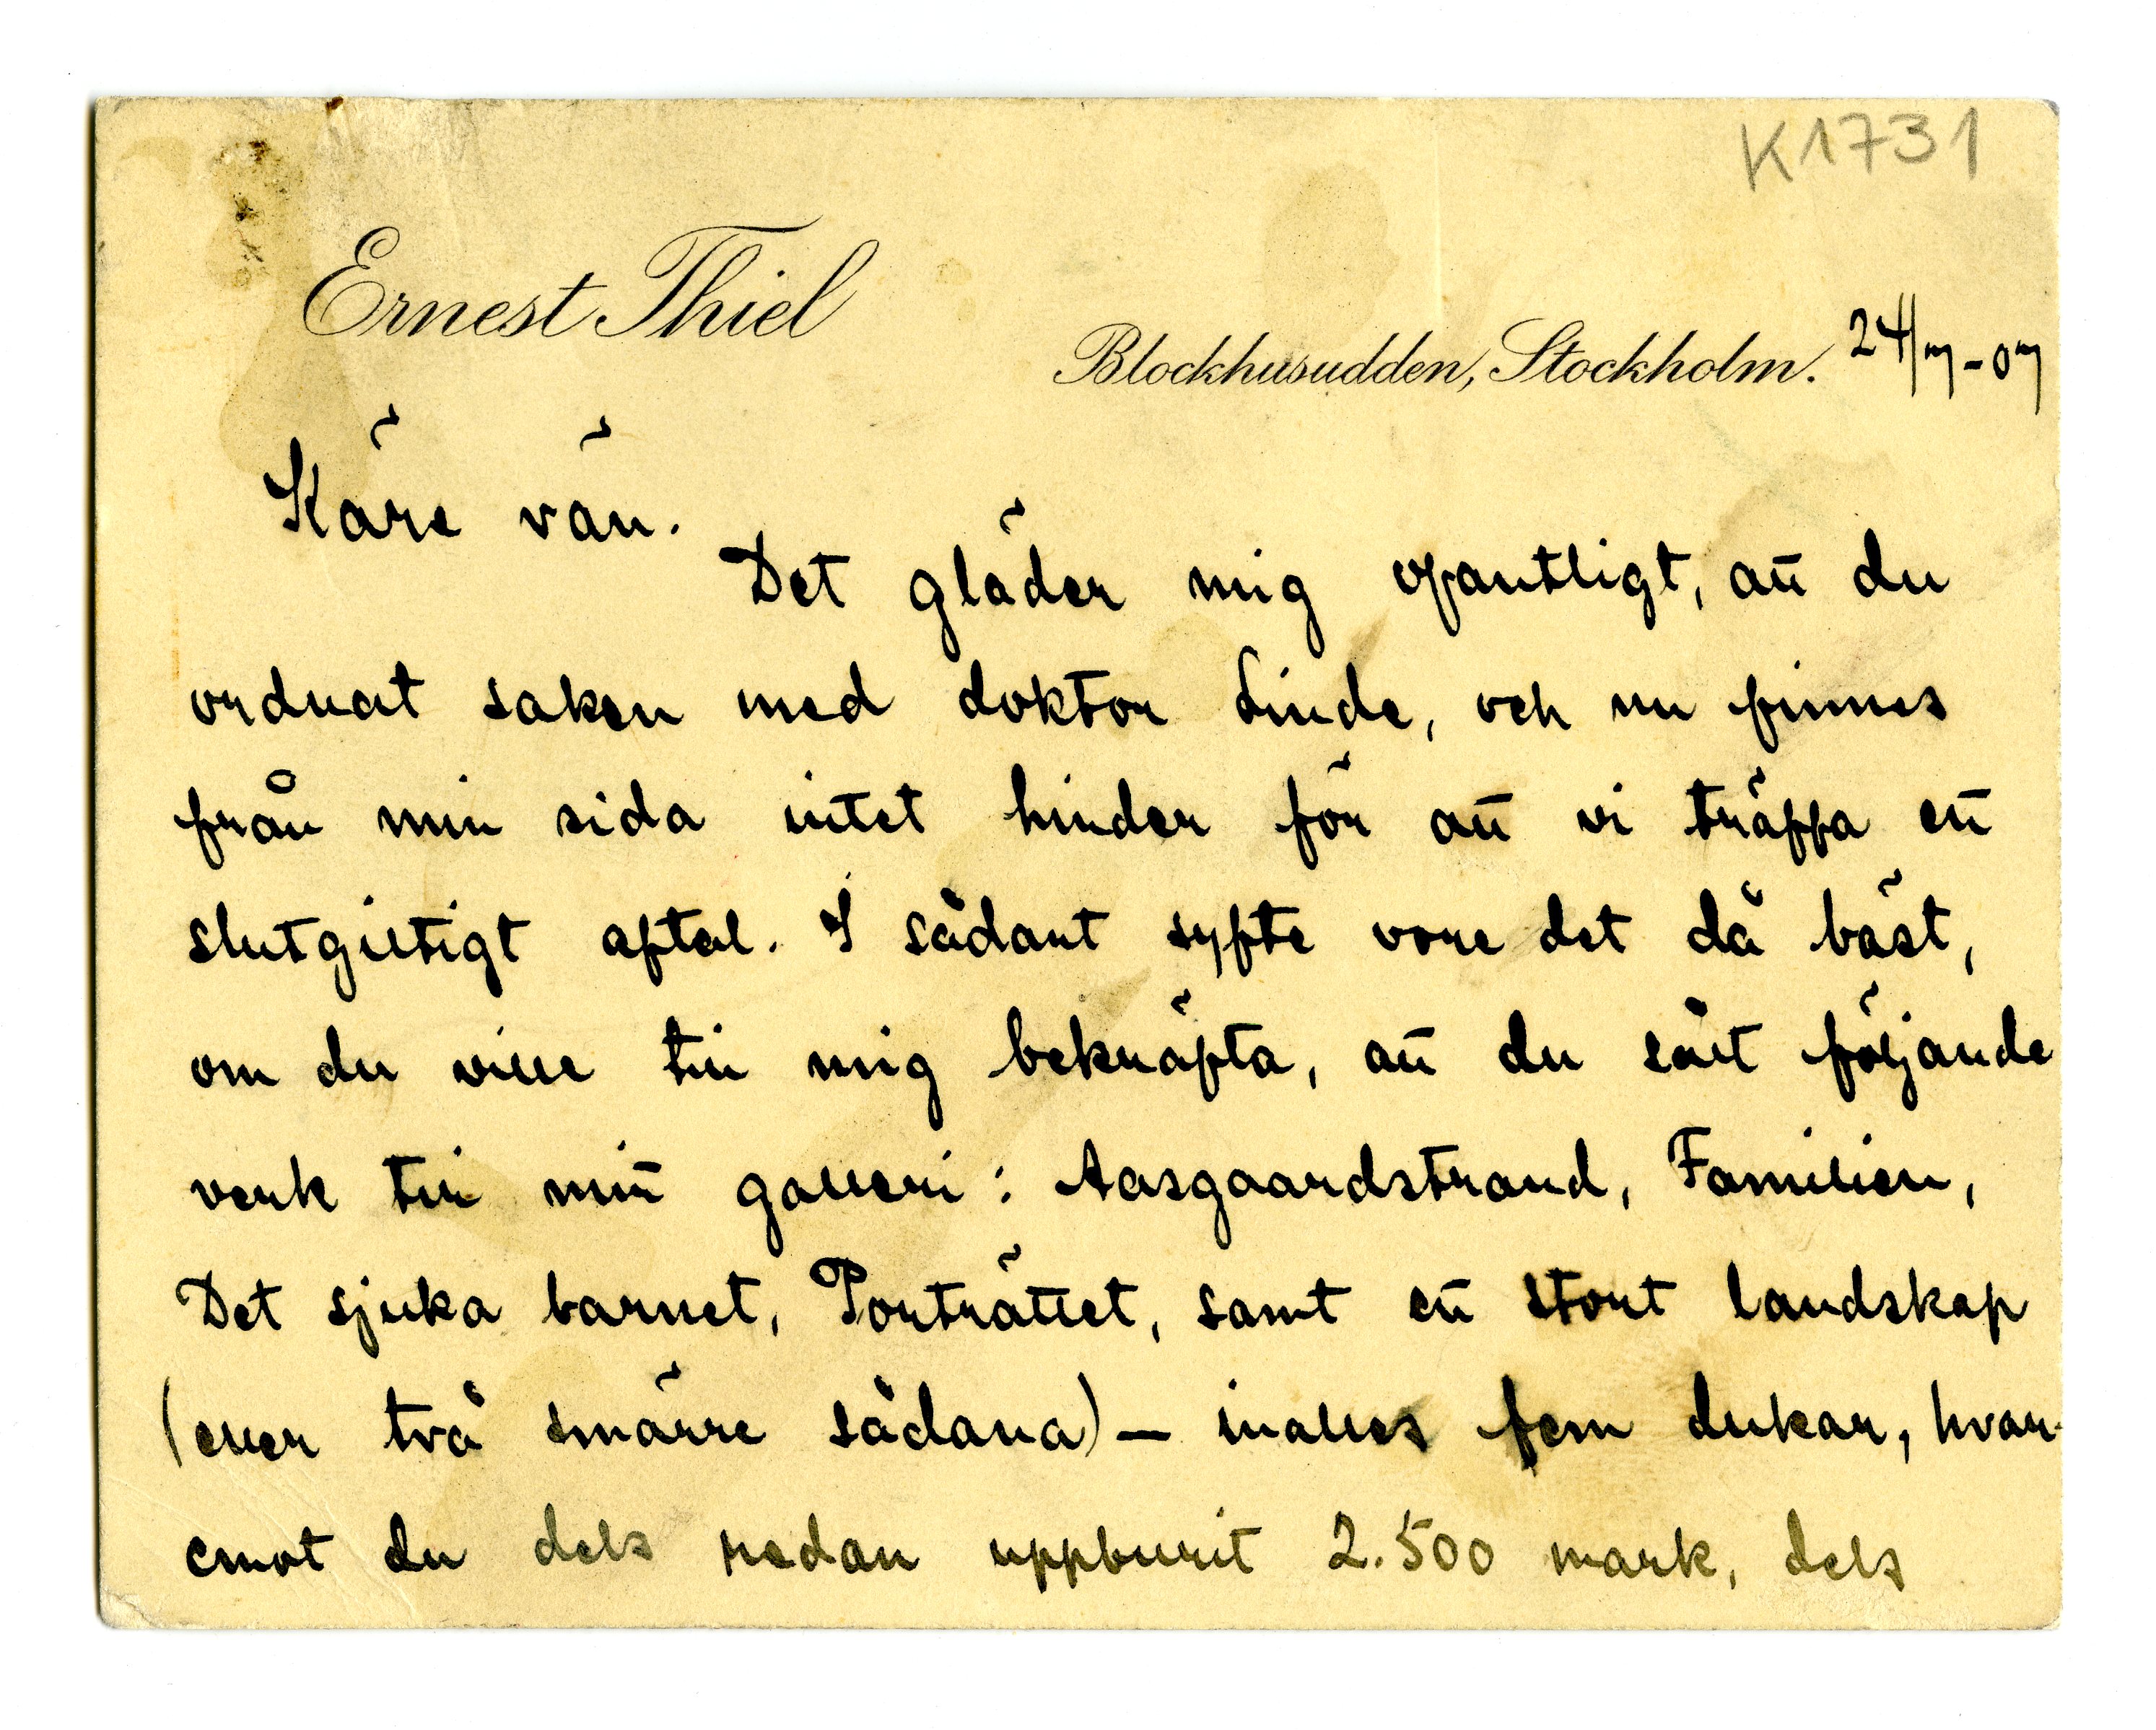 K1731
Ernest Thiel
Blockhusudden, Stockholm. 24/7-07
Käre vän.
Det gläder mig ofantligt, att du
ordnat saken med doktor Linde, och nu finnes
från min sida intet hinder för att vi träffa ett
slutgiltigt aftal. I sådant syfte vore det då bäst,
om du ville till mig bekräfta, att du sålt följande
verk till mitt galleri: Aasgaardstrand, Familien,
Det sjuka barnet, Porträttet, samt ett stort landskap
(eller två smärre sådana) – inalles fem dukar, hvar-
emot du dels redan uppburit 2.500 mark, dels